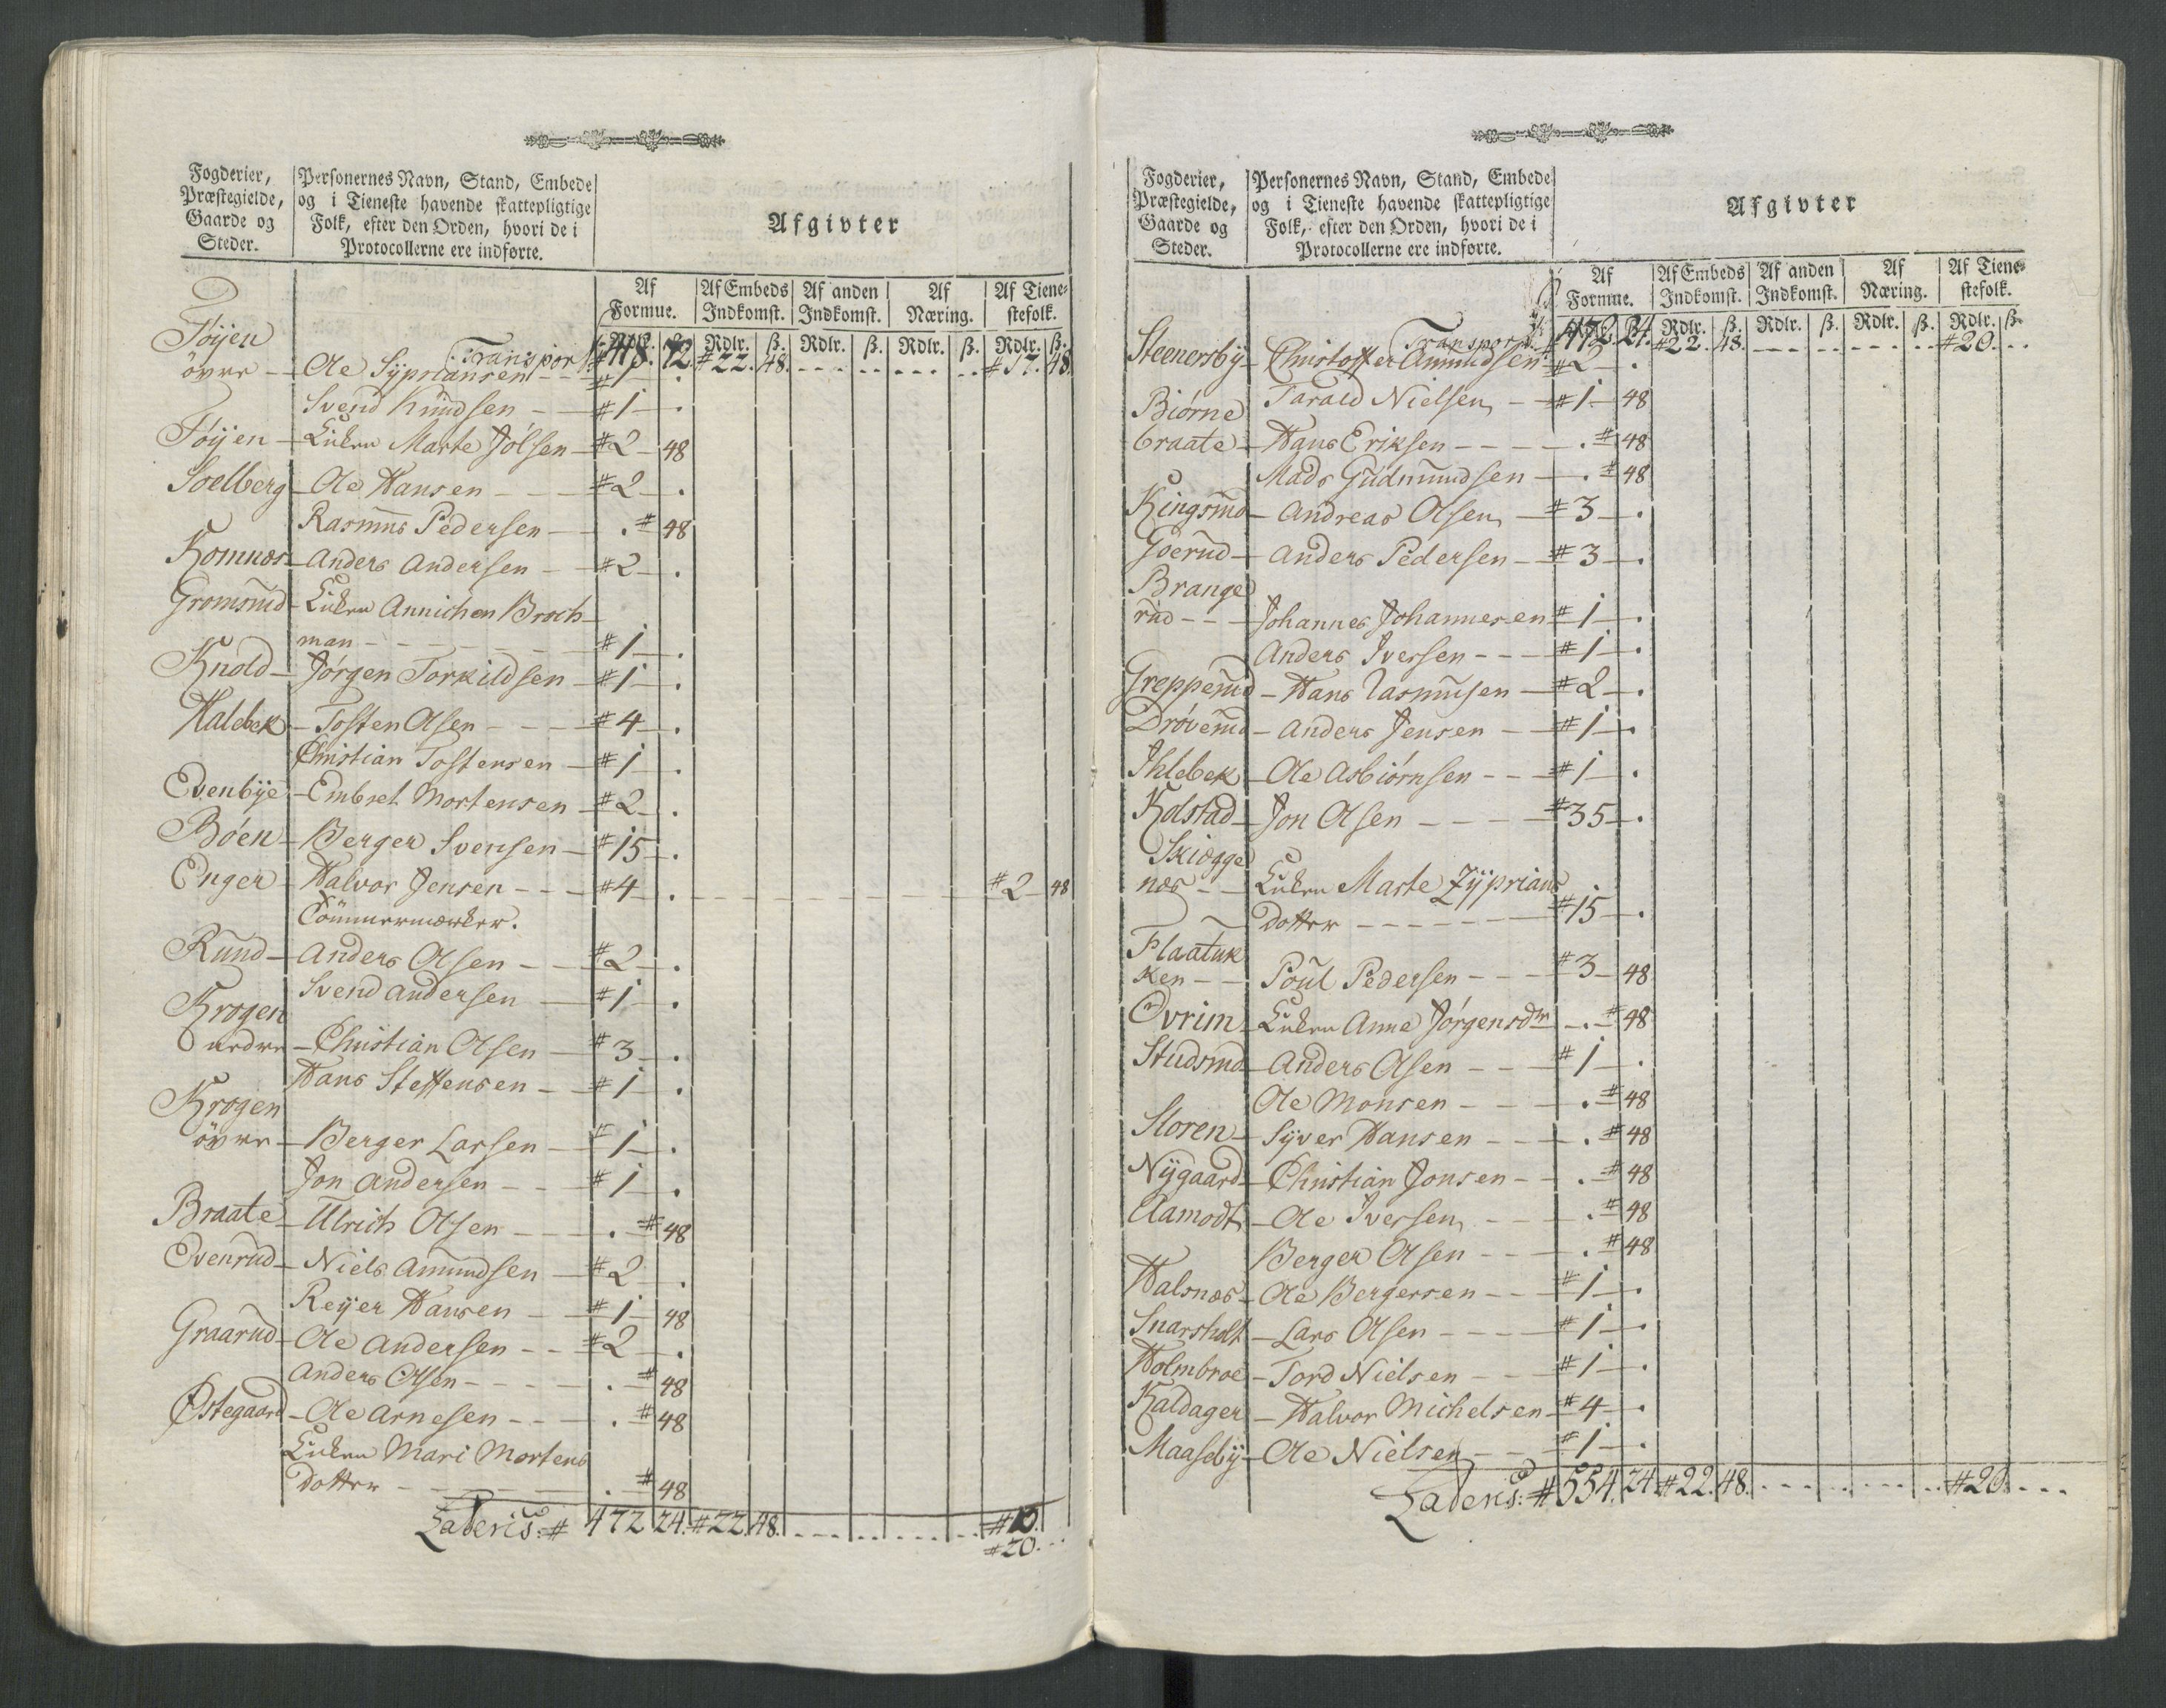 Fogderier, Præstegielde, Gaarde og Steder.
Personernes Navn, Stand, Embede og i Tieneste havende skattepligtige Folk, efter den Orden, hvori de i Protocollerne ere indførte.
Afgivter
Af Formue. Af Embeds Indkomst. Af anden Indkomst. Af Næring. Af Tienestefolk.
Rdlr. ß. Rdlr. ß. Rdlr. ß. Rdlr. ß.
Transport 72. #22. 48. #17. 48.
Töyen
övre - Ole Sÿpriansen - #1 - .
Svend Knudsen - #1 - .
Töyen - Enken Marte Jolsen - #2 - 48
Soelberg - Ole Hansen - #2 - .
Rasmus Pedersen - . # 48
Komnæs - Anders Andersen - #2 - .
Gromsrud - Enken Annichen Broch-
man - #1 - .
Knold - Jørgen Torkildsen - #1 - .
Halebek - Tosten Olsen - #4 - .
Christian Tostensen - #1 - .
Evenbÿe - Embret Mortensen - #2 - .
Böen - Berger Svensen - #15 - .
Enger - Halvor Jensen - #4 - . #2 - 48
Tömmermærker.
Rund - Anders Olsen - #2 - .
Svend Andersen - #1 - .
Krogen
nedre - Christian Olsen - #3 - .
Hans Steffensen - #1 - .
Krogen
övre - Berger Larsen - #1 - .
Jon Andersen - #1 - .
Braate - Ulrich Olsen - . # 48
Evenrud - Niels Amundsen - #2 - .
Reÿer Hansen - #1 - 48
Graarud - Ole Andersen - #2 - .
Anders Olsen - . # 48
Østegaard - Ole Arnesen - . # 48
Enken Mari Mortens
dotter - . # 48
Lateris: # 472 24. #22. 48. #20.
Fogderier, Præstegielde, Gaarde og Steder.
Personernes Navn, Stand, Embede og i Tieneste havende skattepligtige Folk, efter den Orden, hvori de i Protocollerne ere indførte.
Afgivter
Af Formue. Af Embeds Indkomst. Af anden Indkomst. Af Næring. Af Tienestefolk.
Rdlr. ß. Rdlr. ß. Rdlr. ß. Rdlr. ß.
Transport 472. 24. #22. 48. #20.
Steenersbÿ - Christoffer Amundsen - #2 - .
Tarald Nielsen - #1 - 48
Biørne
braate - Hans Eriksen - . # 48
Mads Gudmundsen - . # 48
Kingsrud - Andreas Olsen - #3 - .
Goerud - Anders Pedersen - #3 - .
Brange
rud - Johannes Johannesen #1 - .
Anders Iversen - #1 - .
Grepperud - Hans Rasmusen - #2 - .
Drøverud - Anders Jensen - #1 - .
Ihlebek - Ole Asbiørnsen - #1 - .
Kolstad - Jon Olsen - #35 - .
Skiøgge
næs - Enken Marte Zÿprians
dotter - #15 - .
Flaatuk
ken - Poul Pedersen - #3 - 48
Ovrim - Enken Anne Jörgensdtr - . # 48
Studsrud - Anders Olsen - #1 - .
Ole Monsen - . # 48
Storen - Sÿver Hansen - . # 48
Nÿgaard - Christian Jonsen - . # 48
Aamodt - Ole Iversen - . # 48
Berger Olsen - . # 48
Halsnæs - Ole Bergersen - #1 - .
Snarsholt - Lars Olsen - #1 - .
Holmbroe - Tord Nielsen - #1 - .
Kaldager - Halvor Michelsen - #4 - .
Maasebÿ - Ole Nielsen - #1 - .
Lateris: # 554. 24 #22. 48. #20.